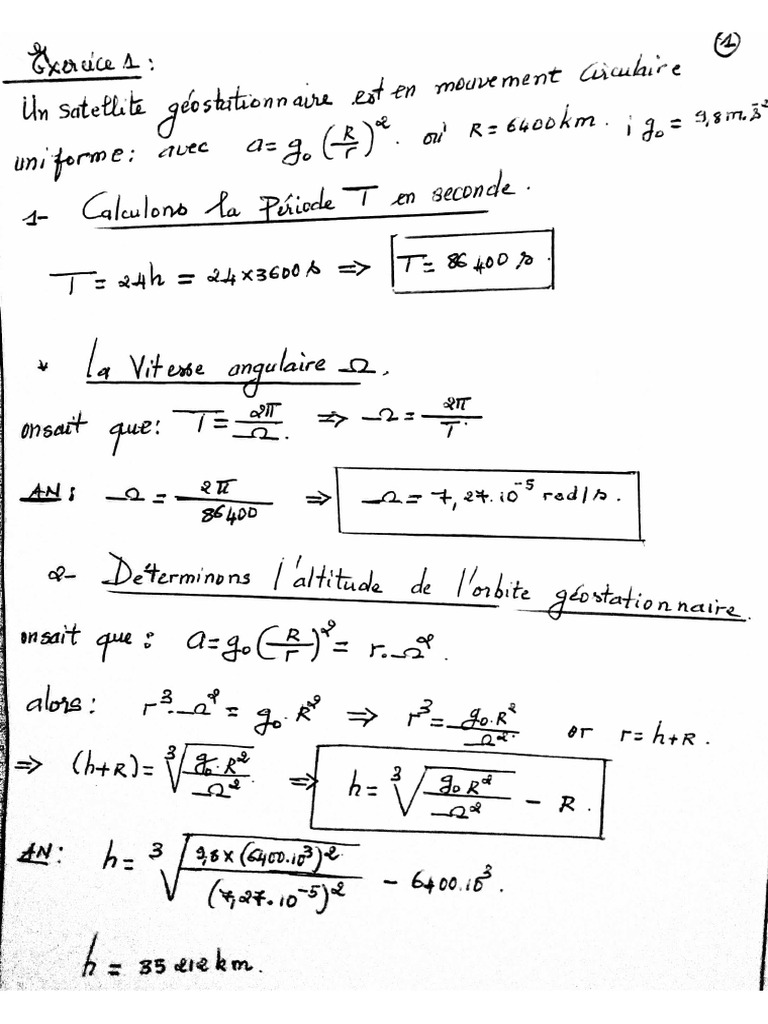 ①
Exercice 1 :
Un satellite géostationnaire est en mouvement circulaire
uniforme : avec a = g₀ (R/r)². où R = 6400 km. ; g₀ = 9,8 m.s⁻²
1- Calculons la Période T en seconde.
T = 24h = 24×3600 s => T = 86 400 s.
* La Vitesse angulaire Ω.
onsait que : T = 2π/Ω. => Ω = 2π/T
AN : Ω = 2π/86400 => Ω = 7,27.10⁻⁵ rad/s.
2- Déterminons l'altitude de l'orbite géostationnaire.
onsait que : a = g₀ (R/r)² = r.Ω².
alors : r³.Ω² = g₀.R² => r³ = g₀.R²/Ω². or r = h+R.
=> (h+R) = ∛(g₀.R²/Ω²) => h = ∛(g₀R²/Ω²) - R.
AN : h = ∛(9,8×(6400.10³)²/(7,27.10⁻⁵)²) - 6400.10³.
h = 35 212 km.